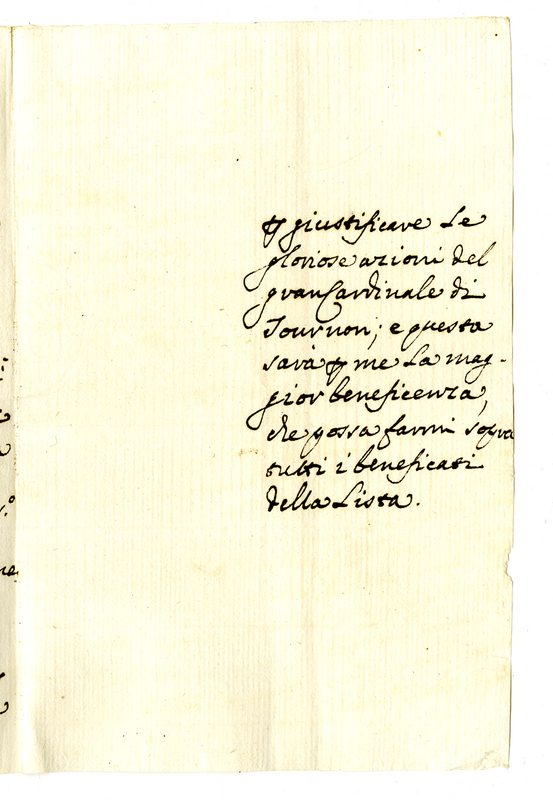 ꝑ giustificare Le
gloriose azioni del
gran Cardinale di
Tournon; e questa
sarà ꝑ me La mag-
gior beneficenza,
che possa farmi sopra
tutti i beneficati
della Lista.